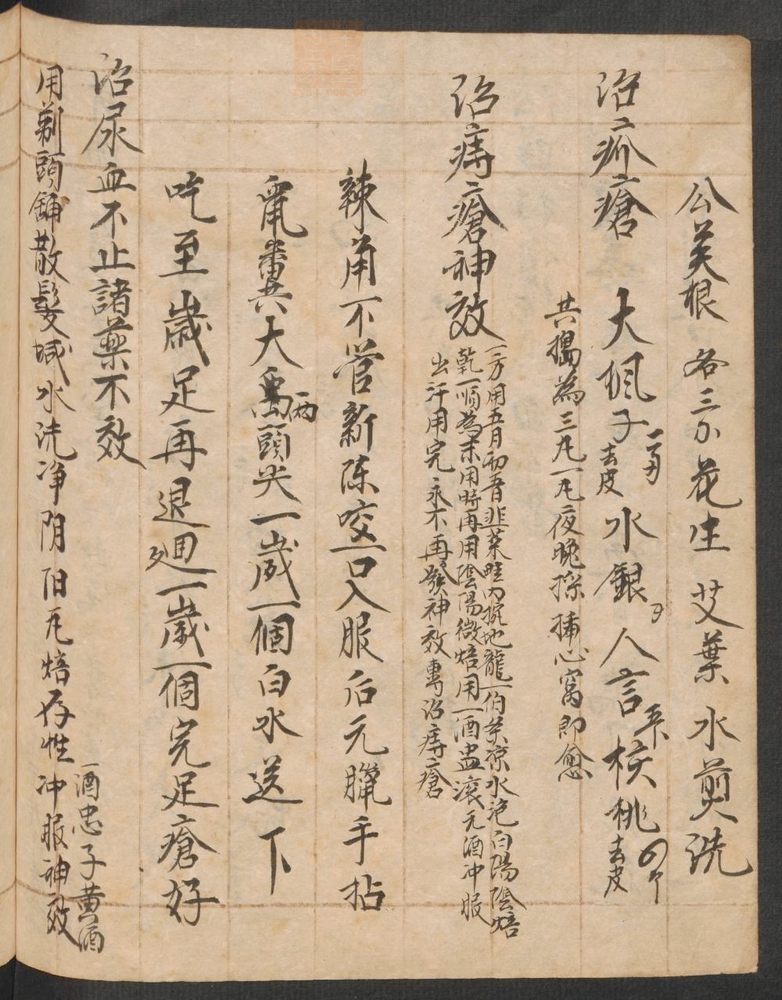 公英根各三分花生艾葉水煎洗
治疥瘡 大楓子去皮 水銀 人言 核桃去皮
共搗為三丸一丸夜晚搽捶心窩即愈
治痔瘡神效
一方用五月初五日韭菜畦內挖地龍一伯 凉水泡白陽陰焙
乾一順為末用時再用陰陽微焙用一酒盅滾元酒冲服
出汗用完永不再發神效專治痔瘡
辣角不管新陈咬一口入服后元臘手拈
鼠糞大兩頭尖一歲一個白水送下
吃至歲足再退週一歲一個完足瘡好
治尿血不止諸藥不效
用剃頭舖散髮堿水洗净阴阳瓦焙存性冲服神效
一酒忠子黄酒